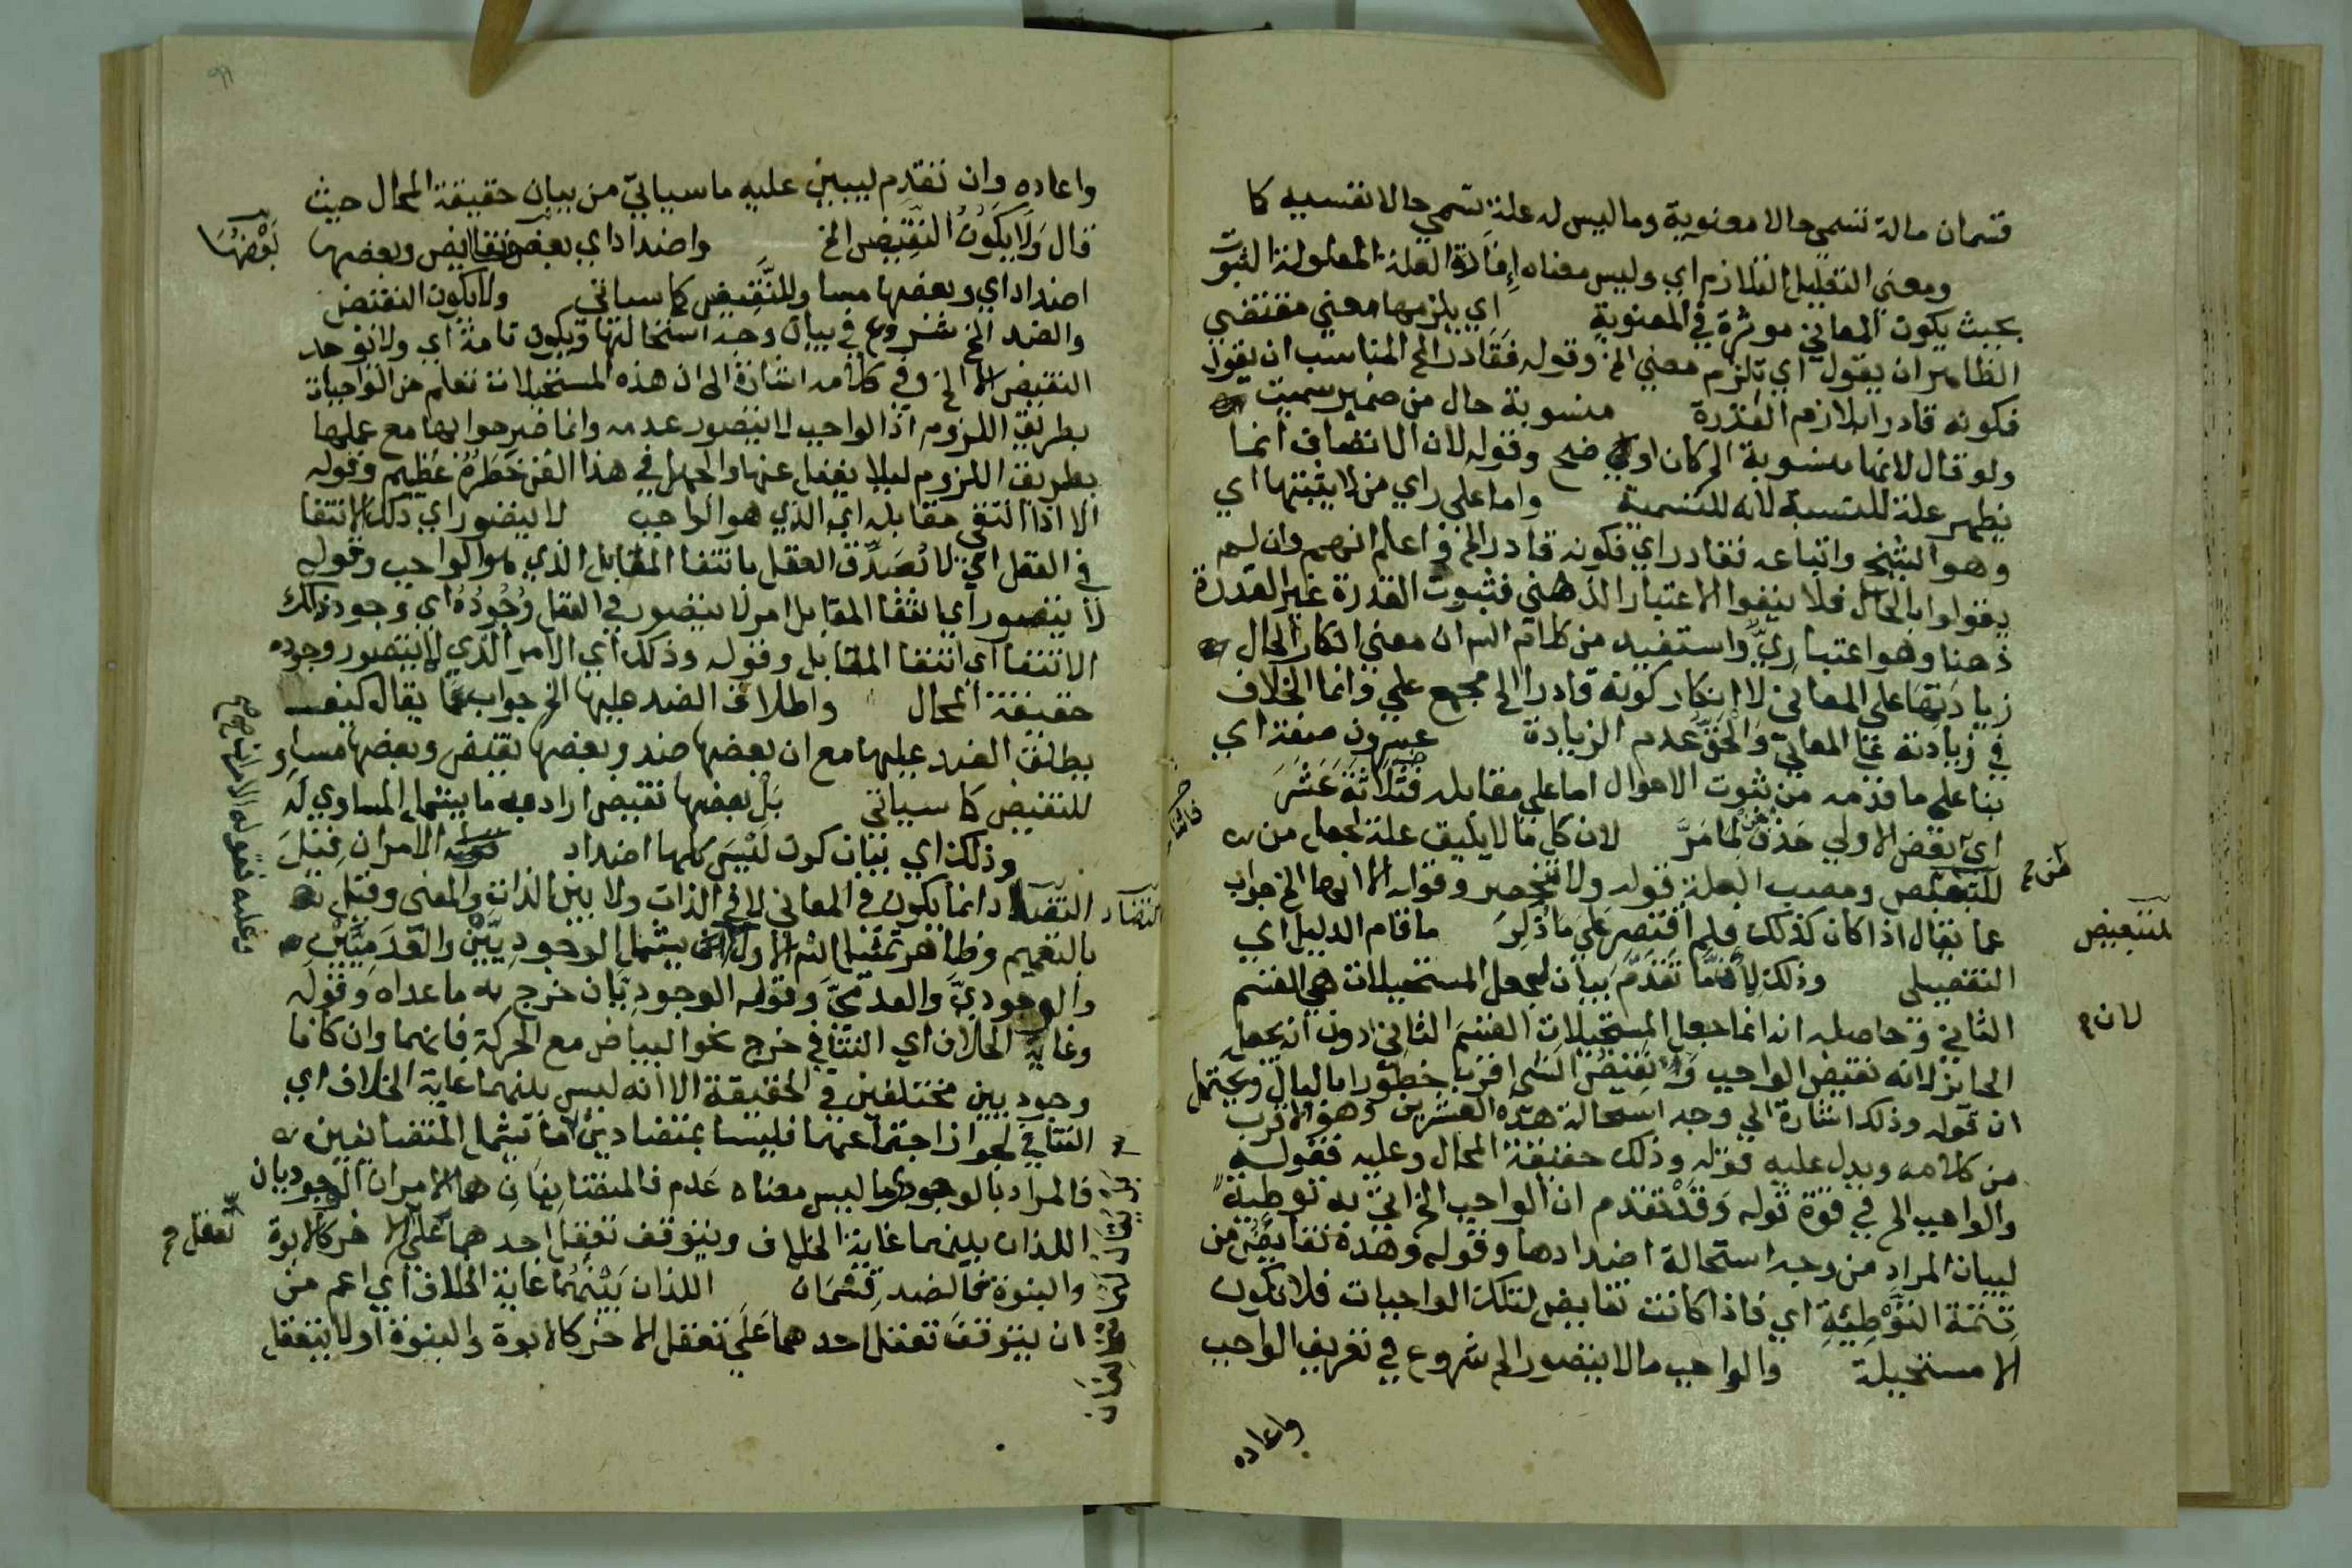 قسمان ماله تسمى حالا معنوية وما ليس له علة تسمى حالا نفسيه كا
ومعنى التعليل التلازم اي وليس معناه إفادة العلة المعلولة الثبوت
بحيث يكون المعاني موثرة في المعنوية اي يلزمها معنى مقتضى
الظاهر ان يقول اي تلزم معنى الخ وقوله فقادر الخ المناسب ان يقول
فكونه قادرا يلازم القدرة منسوبة حال من ضمير سميت
ولو قال لانها منسوبة الخ كان اوضح وقوله لان الاتصاف انما
يظهر علة للنسبة لا له للتسمية واما على راي من لا يثبتها اي
وهو الشيخ واتباعه فقادر اي فكونه قادر الخ واعلم انهم وان لم
يقولوا بالحال فلا ينفوا الاعتبار الذهني فثبوت القدرة غير القدرة
ذهنا وهو اعتباريّ واستفيد من كلام الش ان معنى انكار الحال
زيادتها على المعاني لا انكار كونه قادرا الخ مجمع علي وانما الخلاف
في زيادته على المعاني والحق عدم الزيادة عشرون صفة اي
بنا على ما قدمه من ثبوت الاحوال اما على مقابله فثلاثة عشر
اي نقض الاولى حذف من لما مرّ لان كل ما لا يليق علة لجعل من
للتبعيض ومصب العلة قوله ولا تنحصر وقوله الا انها الخ جواب
عما يقال اذا كان كذلك فلم اقتصر على ما ذكر ما قام الدليل اي
التفصيلي وذلك لما تقدم بيان لجعل المستحيلات هي القسم
الثاني وحاصله انه انما جعل المستحيلات القسم الثاني دون ان يجعل
الجائز لانه نقيض الواجب ونقيض الشى اقرب خطورا بالبال ويحتمل
ان قوله وذلك اشارة الى وجه استحالة هذه العشرين وهو الاقرب
من كلامه ويدل عليه قوله وذلك حقيقة المحال وعليه فقوله
والواجب الخ في قوة قوله وقد تقدم ان الواجب الخ اتى به توطيةً
لبيان المراد من وجه استحالة اضدادها وقوله وهذه نقايض من
تتمة التوطئة اي فاذا كانت نقايض لتلك الواجبات فلا تكون
الا مستحيلة والواجب ما لا يتصور الخ شروع في تعريف الواجب
واعاده
للتبعيض
لان
واعاده وان تقدم ليبين عليه ما سياتي من بيان حقيقة المحال حيث
قال ولا يكون النقيض الخ واضداد اي بعض نقايض وبعضها
بعضها
اضداد اي وبعضها مساو للنقيض كما سياتي ولا يكون النقيض
والضد الخ شروع في بيان وجه استحالتها ويكون تامة اي ولا توجد
النقيض الا الخ وفي كلامه اشارة الى ان هذه المستحيلات تعلم من الواجبات
بطريق اللزوم اذ الواجب لا يتصور عدمه وانما صرحوا بها مع علمها
بطريق اللزوم ليلا يغفل عنها والجهل في هذا الفن خطره عظيم وقوله
الا اذا انتفى مقابله اي الذي هو الواجب لا يتصور اي ذلك الانتفا
في العقل اي لا يصدق العقل بانتفا المقابل الذي هو الواجب وقوله
لا يتصور اي انتفا المقابل امر لا يتصور في العقل وجوده اي وجود ذلك
الانتفا اي انتفا المقابل وقوله وذلك اي الامر الذي لا يتصور وجوده
حقيقة المحال واطلاق الضد عليها الخ جواب عما يقال كيف
يطلق الضد عليها مع ان بعضها ضد وبعضها نقيض وبعضها مساو
للنقيض كما سياتي بل بعضها نقيض اراد به ما يشمل المساوي له
وذلك اي بيان كون ليس كلها اضداد الامران قيل
التضاد انما يكون في المعاني لا في الذات ولا بين الذات والمعنى وقيل
بالتعميم وظاهر تمثيل الش الاول يشمل الوجوديين والعدميين
والوجوديّ والعدميّ وقوله الوجوديان خرج به ما عداه وقوله
وغاية الخلاف اي التنافي خرج نحو البياض مع الحركة فانهما وان كانا
وجوديين مختلفين في الحقيقة الا انه ليس بينهما غاية الخلاف اي
التنافي لجواز اجتماعهما فليسا بمتضادين اما يشمل المتضايفين
فالمراد بالوجودي ما ليس معناه عدم فالمتضايفان هما الامران الوجوديان
اللذان بينهما غاية الخلاف ويتوقف تعقل احدهما على الاخر كالابوة
تعقل
والبنوة فالضد قسمان اللذان بينهما غاية الخلاف اي اعم من
ان يتوقف تعقل احدهما على تعقل الاخر كالابوة والبنوة او لا يتعقل